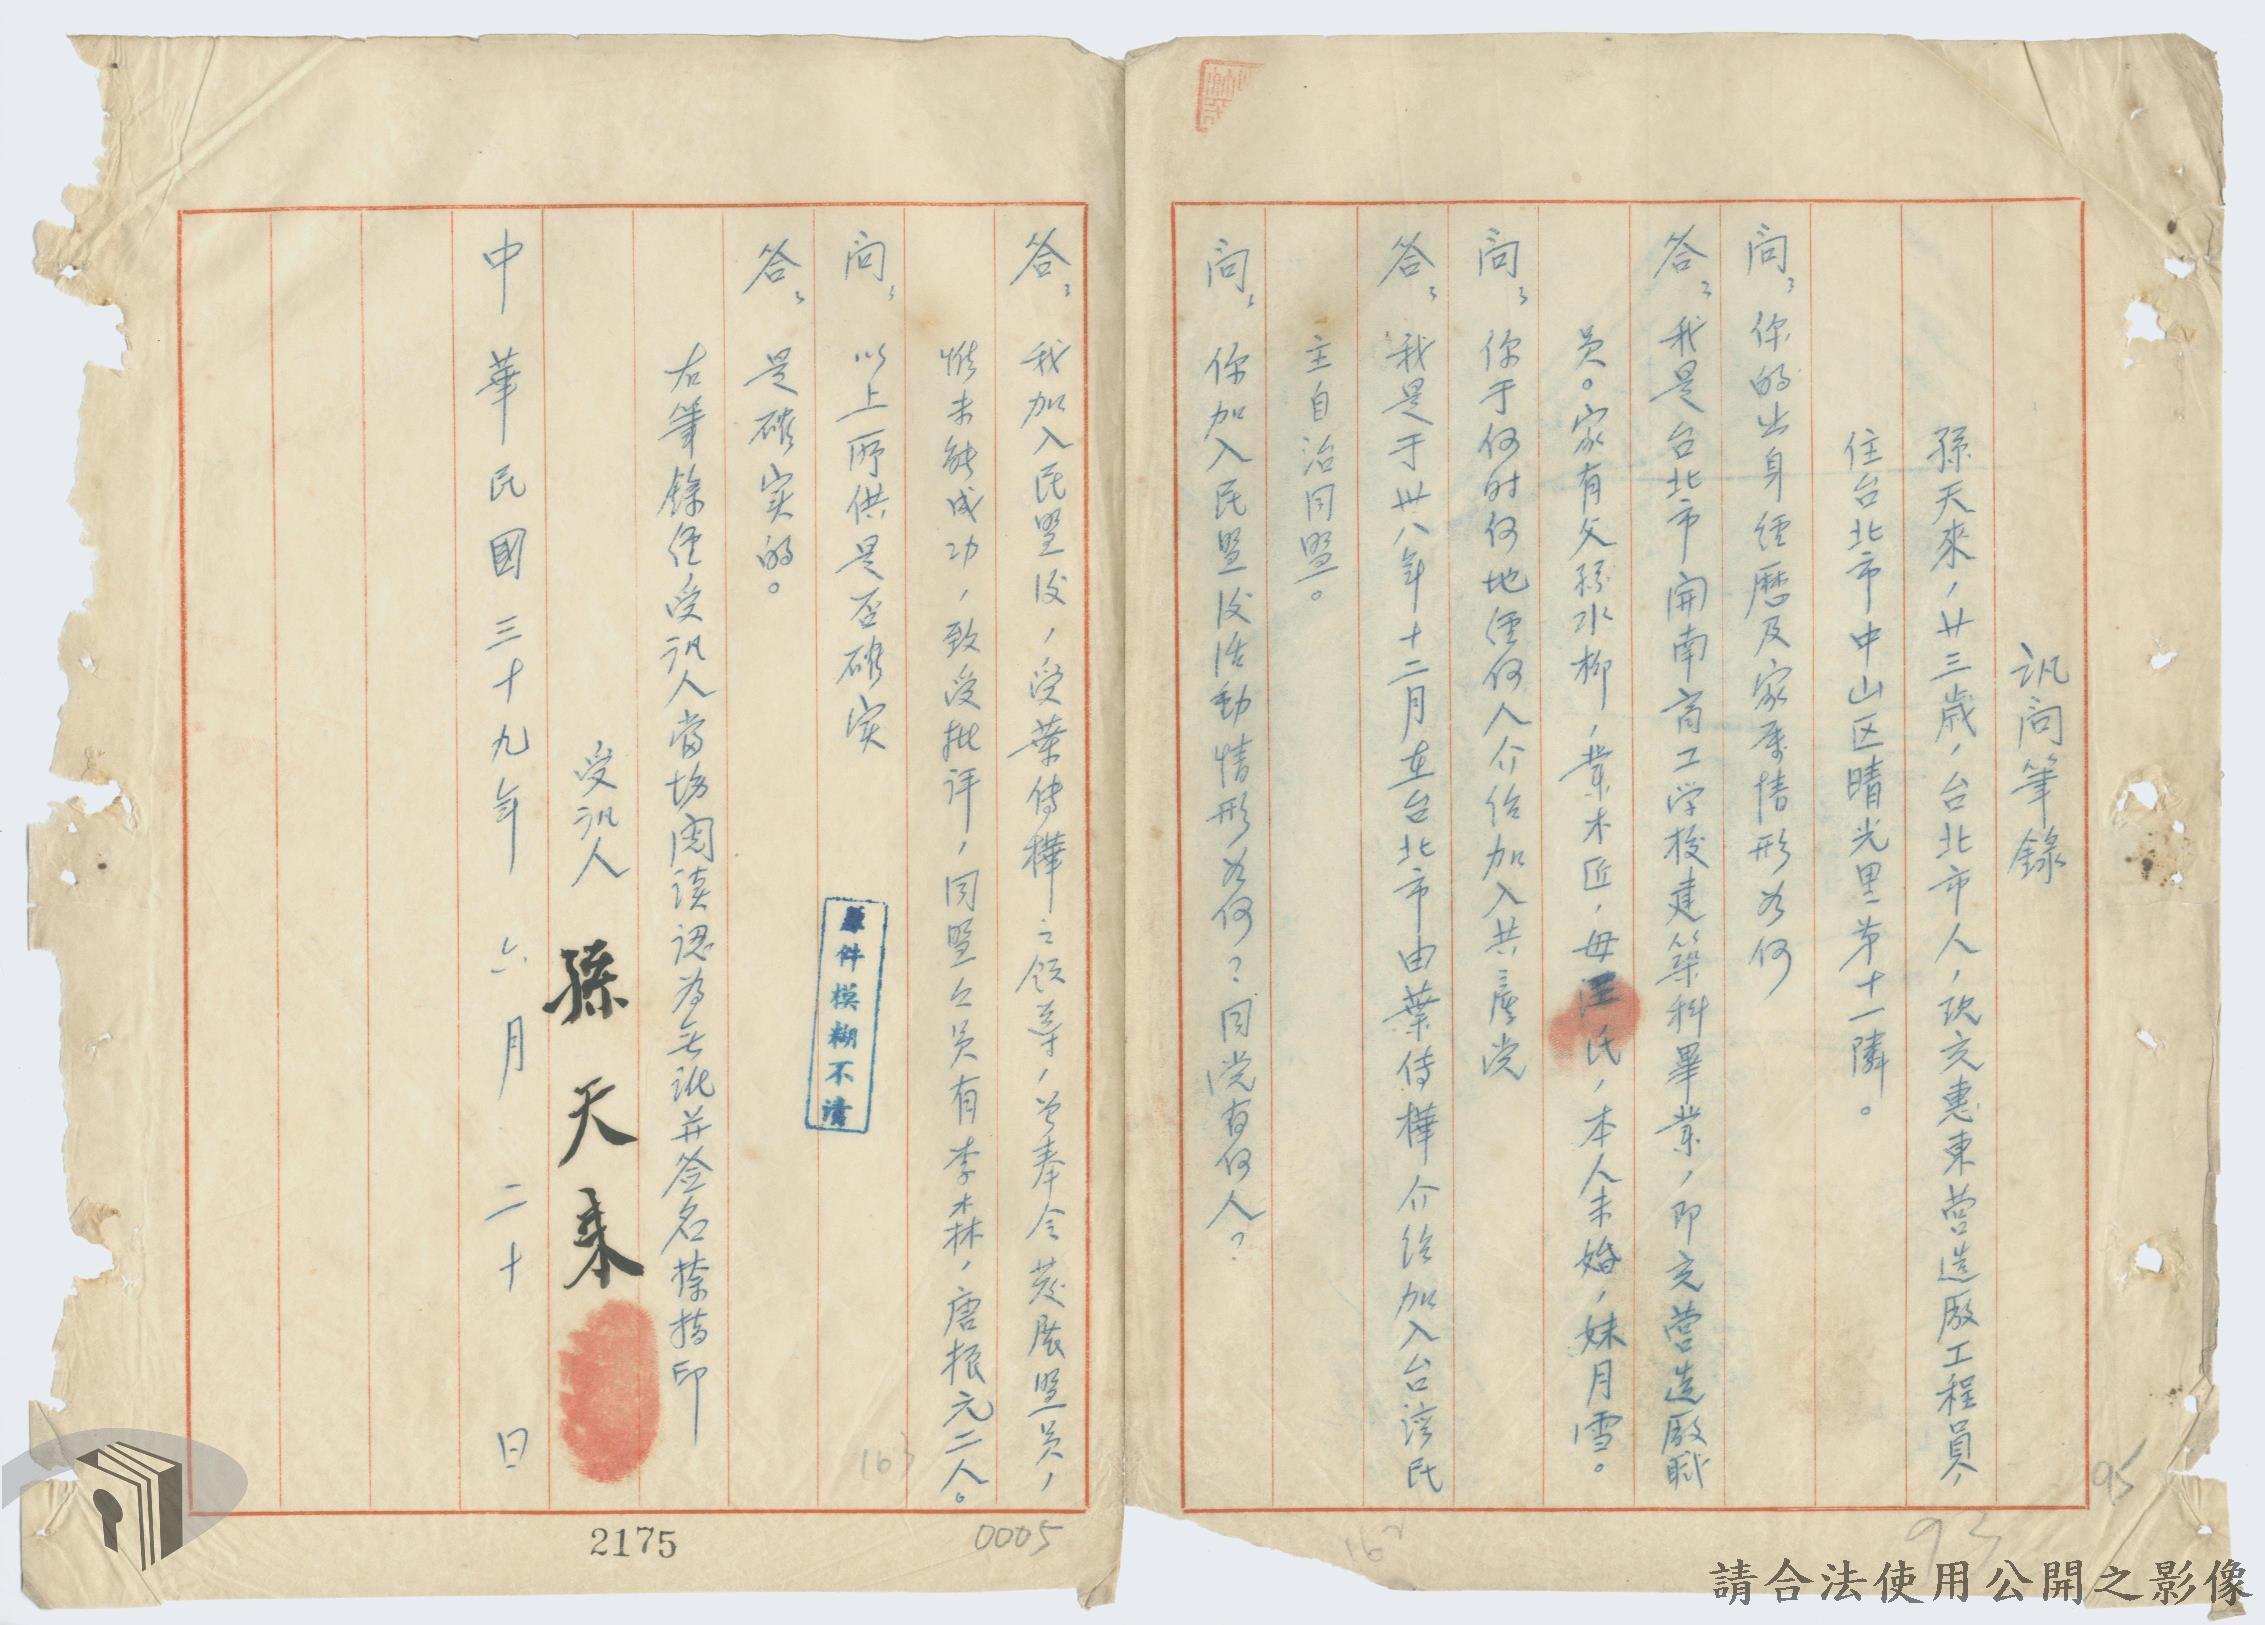 訊問筆錄
孫天來，廿三歲，台北市人，現充惠東營造廠工程員，
住台北市中山区晴光里第十一隣。
問：你的出身经歷及家屬情形为何
答：我是台北市開南商工学校建築科畢業，即充營造廠职
员。家有父孫水柳，業木匠，母汪氏，本人未婚，妹月雪。
問：你于何时何地经何人介绍加入共產党
答：我是于卅八年十二月在台北市由葉傳樺介紹加入台湾民
主自治同盟。
問：你加入民盟後活動情形为何？同党有何人？
答：我加入民盟後，受葉傳樺之领导，曾奉令發展盟员，
惟未能成功，致受批评，同盟之员有李森，唐振元二人。
問：以上所供是否确实
答：是确实的。
右筆錄经受訊人當场閱读認为无訛并签名捺指印
受訊人 孫天來
中華民國三十九年六月二十日
原件模糊不清
163
2175
0005
95
93
請合法使用公開之影像